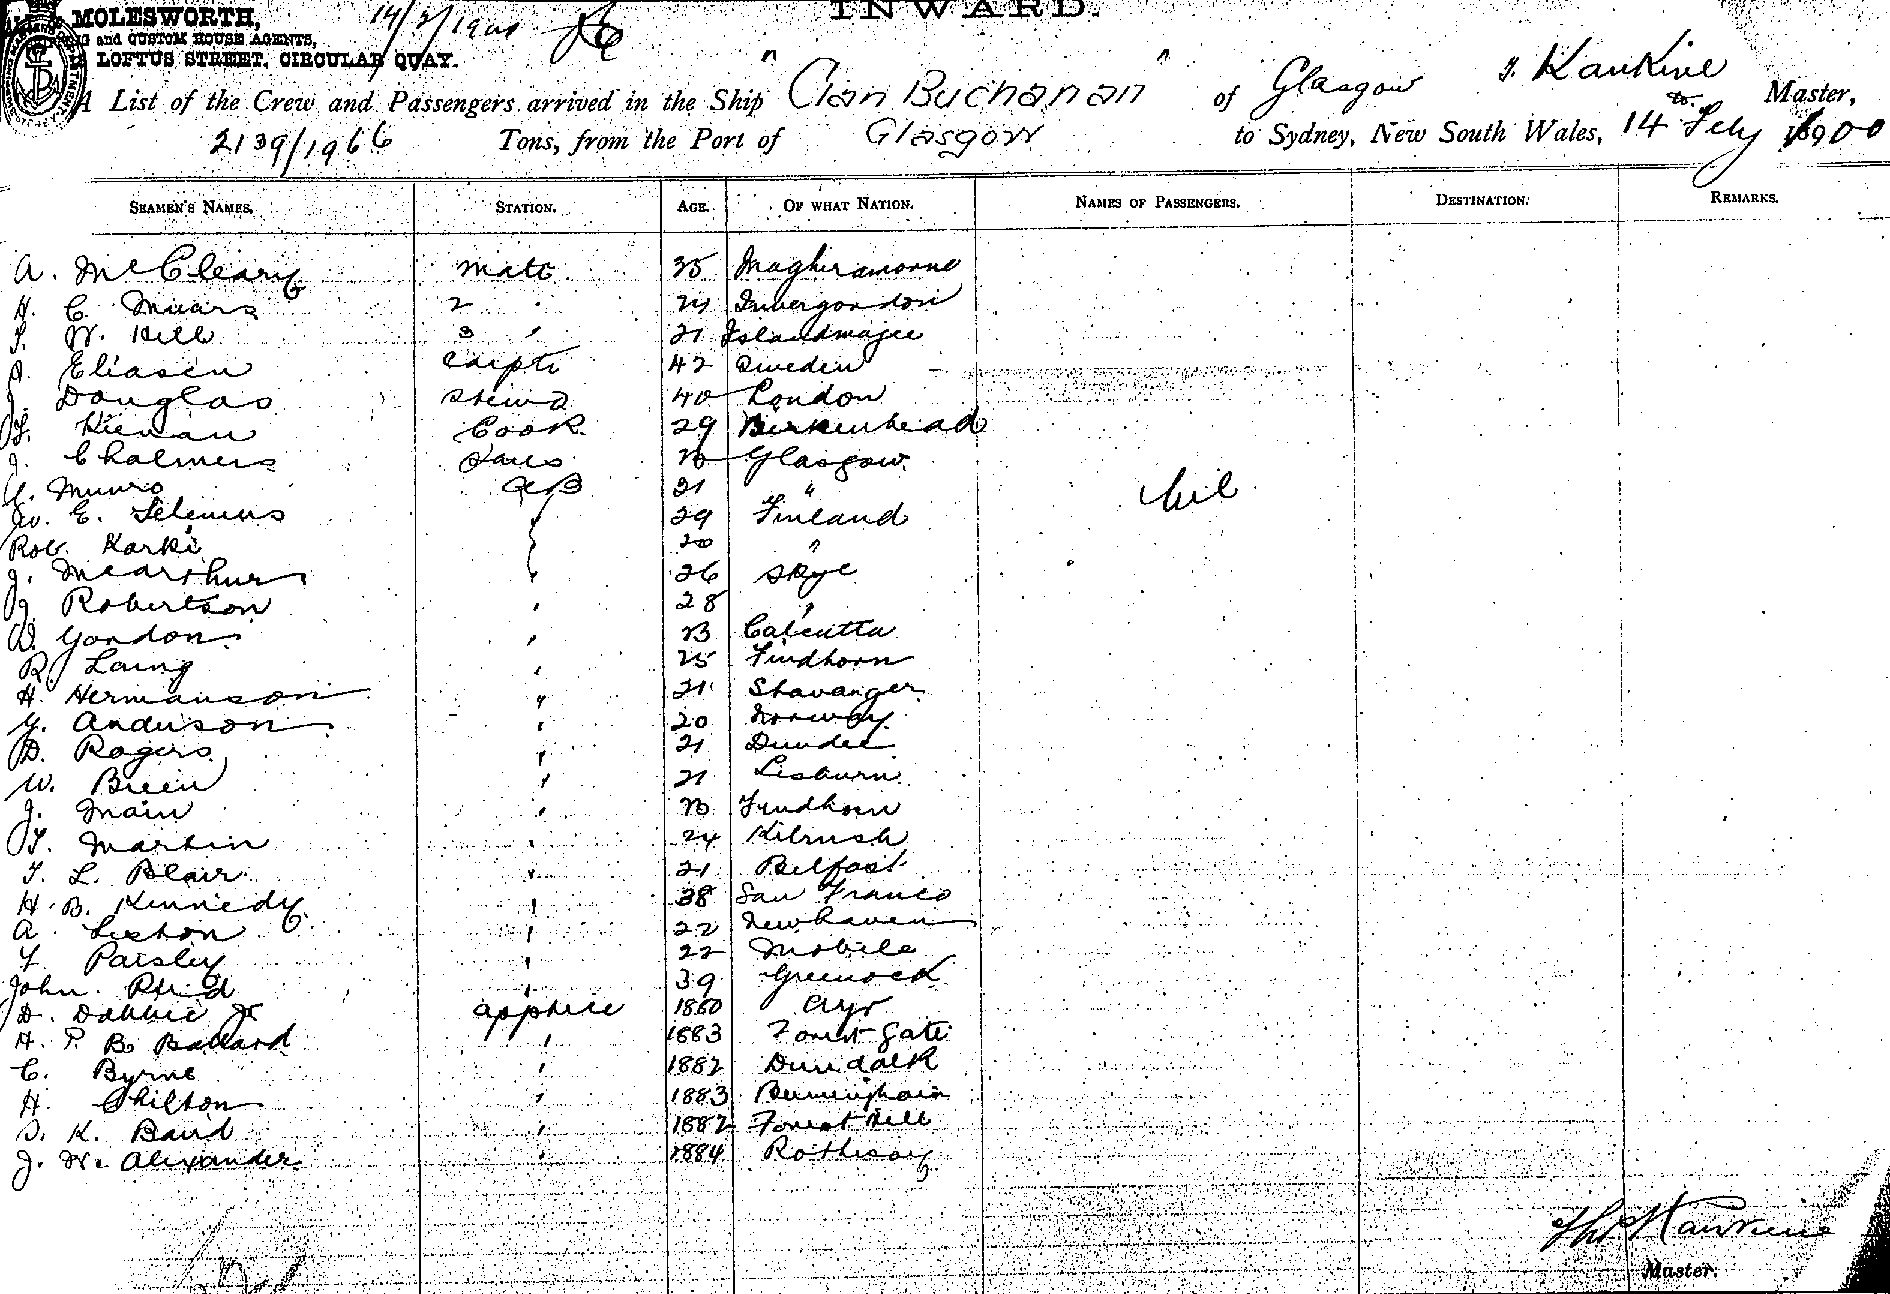 INWARD.
MOLESWORTH,
and CUSTOM HOUSE AGENTS,
LOFTUS STREET, CIRCULAR QUAY.
14/2/1900
A List of the Crew and Passengers arrived in the Ship "Clan Buchanan" of Glasgow T. Rankine Master,
2139/1966 Tons, from the Port of Glasgow to Sydney, New South Wales, 14 Feby 1900
SEAMEN'S NAMES. STATION. AGE. OF WHAT NATION. NAMES OF PASSENGERS. DESTINATION. REMARKS.
A. McCleary Mate 35 Magheramorne
H. C. 2 " Invergordon
W. Hill 3 " 21 Islandmagee
Eliasen Carptr 42 Sweden
J. Douglas Stewd 40 London
Kiernan Cook 29 Birkenhead
J. Chalmers Sails Glasgow
Munro AB 21 "
E. 29 Finland
Rob. Karki 20 "
J. McArthur " 26 Skye
J. Robertson " 28 "
Gordon " 23 Calcutta
R. Laing " 25 Findhorn
H. Hermanson " 21 Stavanger
Anderson " 20 Norway
D. Rogers " 21 Dundee
W. Breen " 21 Lisburn
J. Main " Findhorn
Martin " 24 Kilrush
T. L. Blair " 21 Belfast
H. B. Kennedy " 38 San Franco
A " 22 Newhaven
Paisley " 22 Mobile
John Reid " 39 Greenock
D. Dobbie Jr Apptice 1880 Ayr
H. P. B. Ballard " 1883 Forest Gate
C. Byrne " 1882 Dundalk
H. Chilton " 1883 Birmingham
K. Baird " 1882 Forest Hill
J. W. Alexander " 1884 Rothesay
Nil
Thos Rankine
Master.